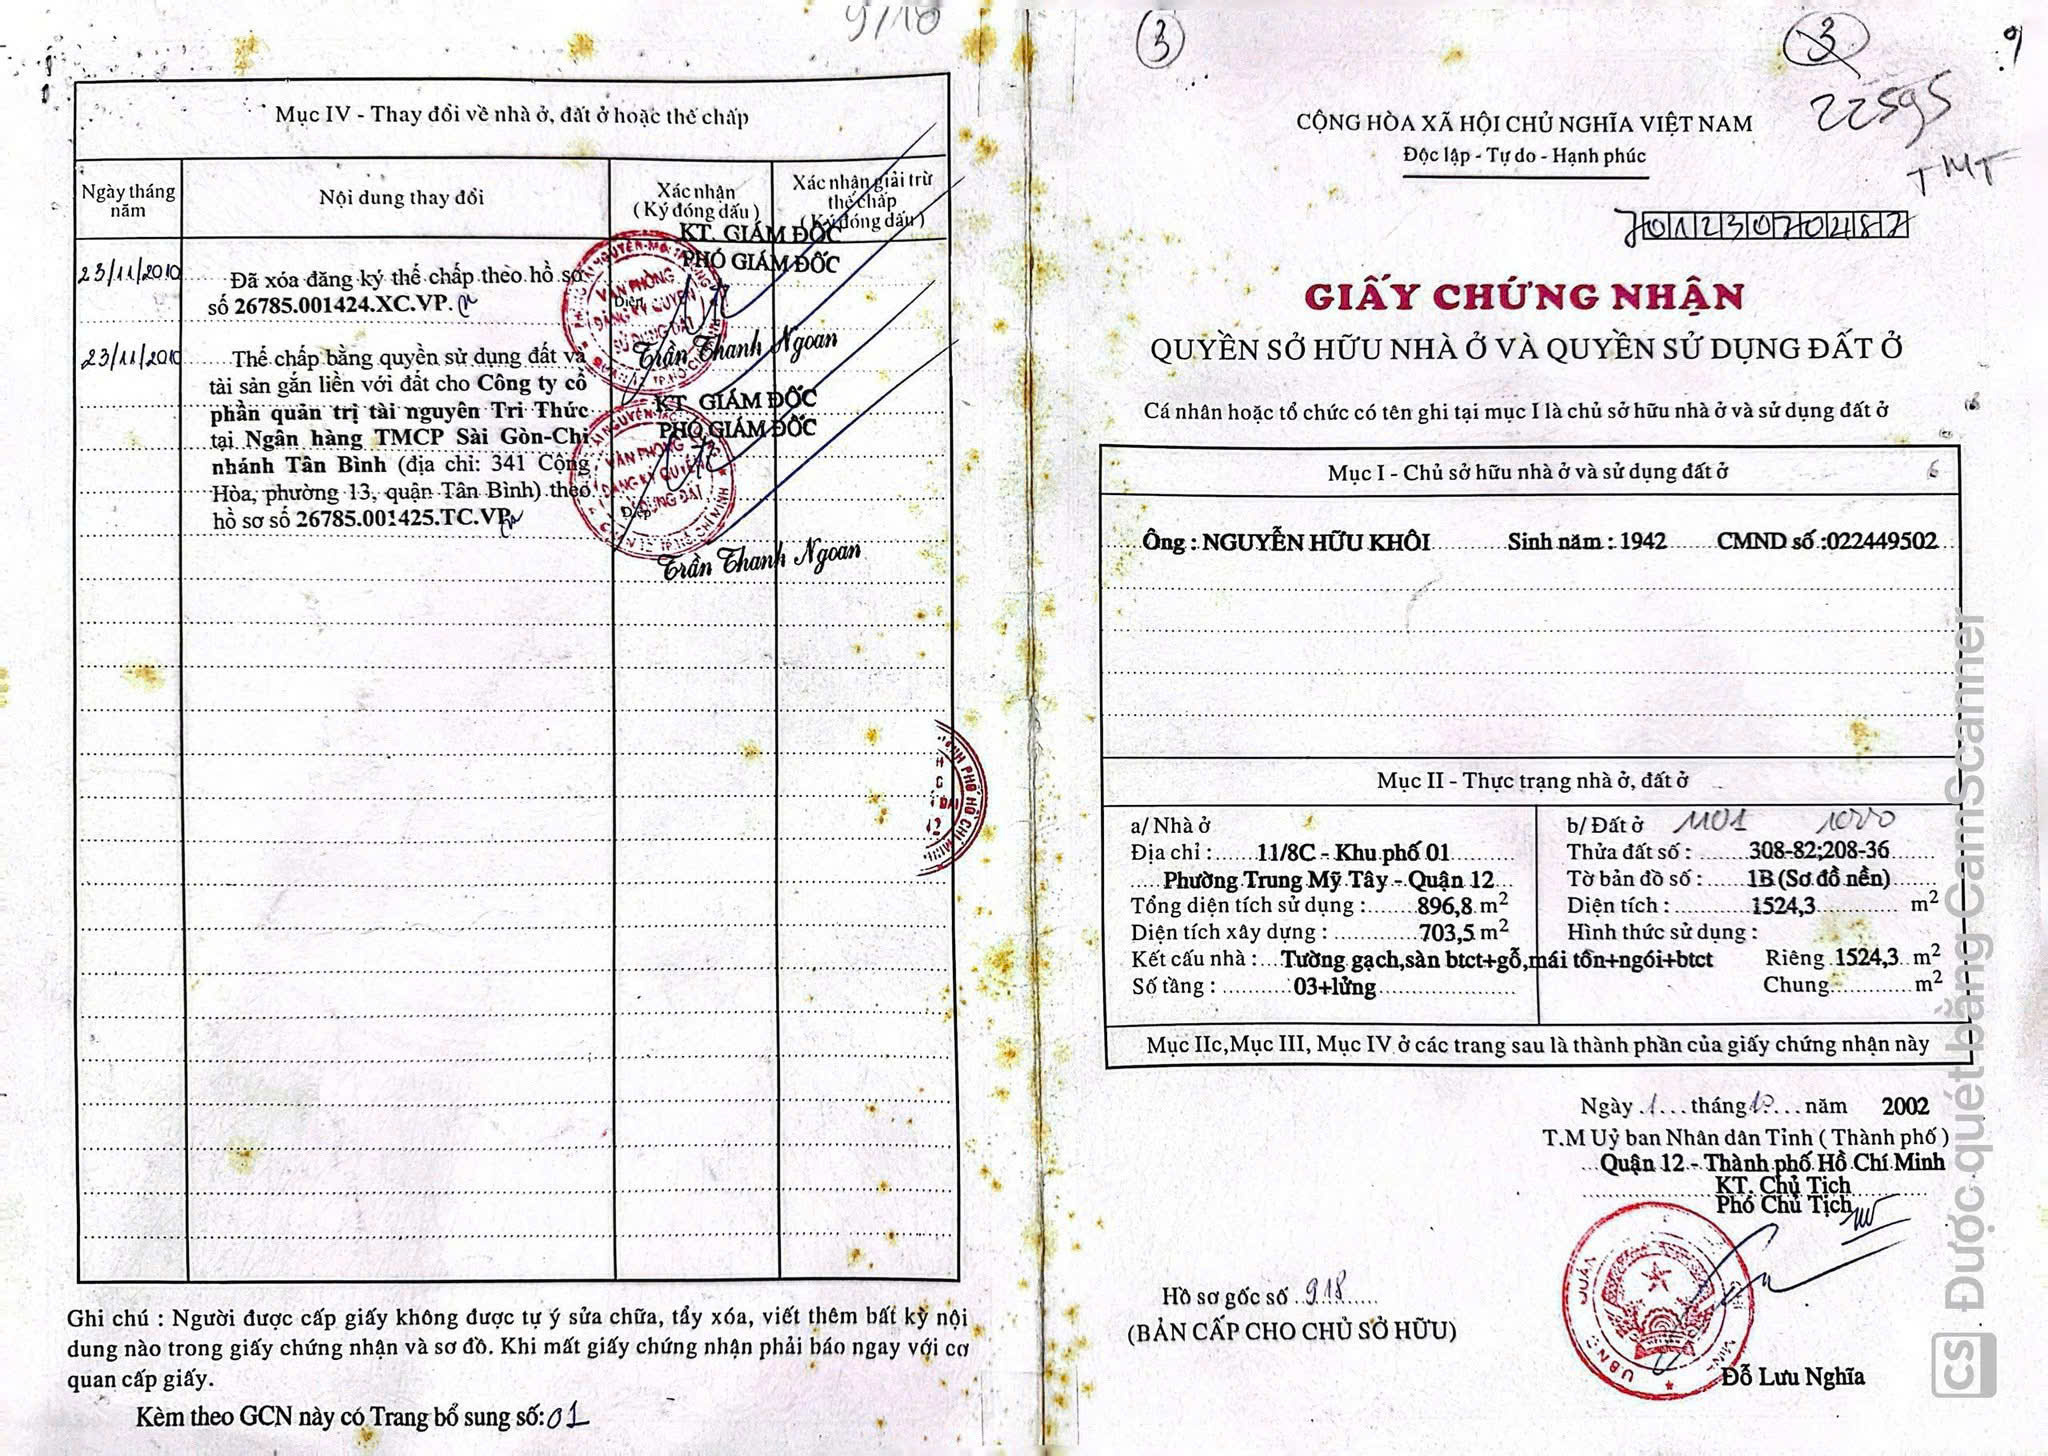 9/18
Mục IV - Thay đổi về nhà ở, đất ở hoặc thế chấp
Ngày tháng năm
Nội dung thay đổi
Xác nhận
(Ký đóng dấu)
Xác nhận giải trừ
thế chấp
(Ký đóng dấu)
23/11/2010
Đã xóa đăng ký thế chấp theo hồ sơ
số 26785.001424.XC.VP.
KT. GIÁM ĐỐC
PHÓ GIÁM ĐỐC
VĂN PHÒNG
ĐĂNG KÝ QUYỀN
SỬ DỤNG ĐẤT
Trần Thanh Ngoan
23/11/2010
Thế chấp bằng quyền sử dụng đất và
tài sản gắn liền với đất cho Công ty cổ
phần quản trị tài nguyên Tri Thức
tại Ngân hàng TMCP Sài Gòn-Chi
nhánh Tân Bình (địa chỉ: 341 Cộng
Hòa, phường 13, quận Tân Bình) theo
hồ sơ số 26785.001425.TC.VP
KT. GIÁM ĐỐC
PHÓ GIÁM ĐỐC
VĂN PHÒNG
ĐĂNG KÝ QUYỀN
SỬ DỤNG ĐẤT
Trần Thanh Ngoan
Ghi chú : Người được cấp giấy không được tự ý sửa chữa, tẩy xóa, viết thêm bất kỳ nội
dung nào trong giấy chứng nhận và sơ đồ. Khi mất giấy chứng nhận phải báo ngay với cơ
quan cấp giấy.
Kèm theo GCN này có Trang bổ sung số: 01
3
3
22595
TMT
CỘNG HÒA XÃ HỘI CHỦ NGHĨA VIỆT NAM
Độc lập - Tự do - Hạnh phúc
70123070487
GIẤY CHỨNG NHẬN
QUYỀN SỞ HỮU NHÀ Ở VÀ QUYỀN SỬ DỤNG ĐẤT Ở
Cá nhân hoặc tổ chức có tên ghi tại mục I là chủ sở hữu nhà ở và sử dụng đất ở
Mục I - Chủ sở hữu nhà ở và sử dụng đất ở
Ông : NGUYỄN HỮU KHÔI Sinh năm : 1942 CMND số :022449502
Mục II - Thực trạng nhà ở, đất ở
a/ Nhà ở
Địa chỉ : 11/8C - Khu phố 01
Phường Trung Mỹ Tây - Quận 12
Tổng diện tích sử dụng : 896,8 m2
Diện tích xây dựng : 703,5 m2
Kết cấu nhà : Tường gạch,sàn btct+gỗ,mái tôn+ngói+btct
Số tầng : 03+lửng
b/ Đất ở 1101
Thửa đất số : 308-82;208-36
Tờ bản đồ số : 1B (Sơ đồ nền)
Diện tích : 1524,3 m2
Hình thức sử dụng :
Riêng 1524,3 m2
Chung m2
Mục IIc,Mục III, Mục IV ở các trang sau là thành phần của giấy chứng nhận này
Ngày 1 tháng 10 năm 2002
T.M Uỷ ban Nhân dân Tỉnh ( Thành phố )
Quận 12 - Thành phố Hồ Chí Minh
KT. Chủ Tịch
Phó Chủ Tịch
Hồ sơ gốc số 918
(BẢN CẤP CHO CHỦ SỞ HỮU)
Đỗ Lưu Nghĩa
CS Được quét bằng CamScanner